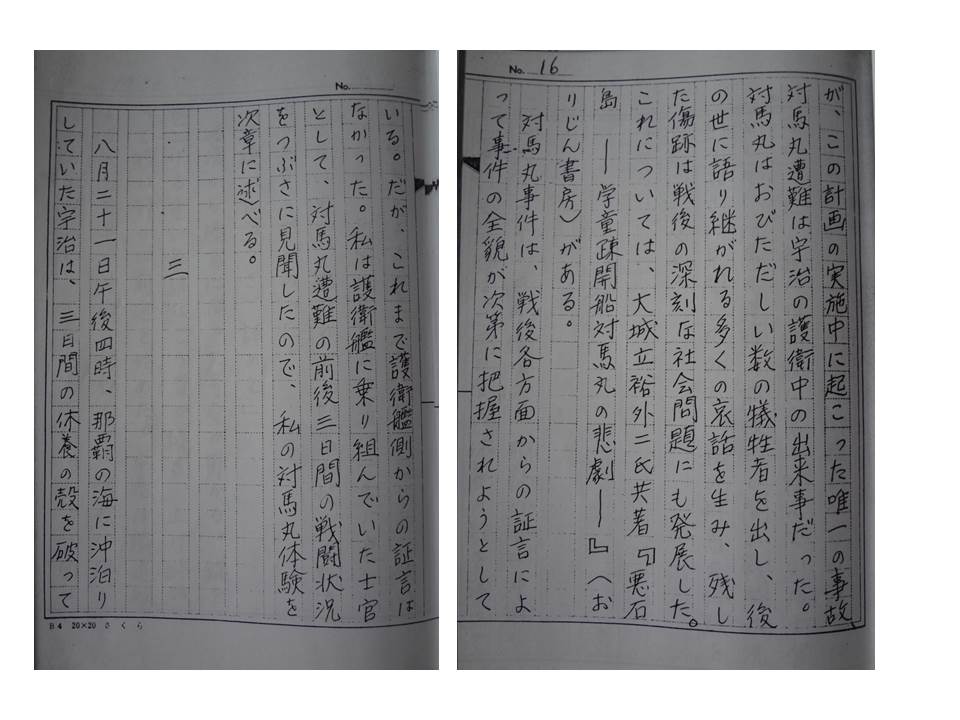 No. 16
が、この計画の実施中に起こった唯一の事故、
対馬丸遭難は宇治の護衛中の出来事だった。
対馬丸はおびただしい数の犠牲者を出し、後
の世に語り継がれる多くの哀話を生み、残し
た傷跡は戦後の深刻な社会問題にも発展した。
これについては、大城立裕外二氏共著『悪石
島 ――学童疎開船対馬丸の悲劇――』（お
りじん書房）がある。
対馬丸事件は、戦後各方面からの証言によ
って事件の全貌が次第に把握されようとして
No.
いる。だが、これまで護衛艦側からの証言は
なかった。私は護衛艦に乗り組んでいた士官
として、対馬丸遭難の前後三日間の戦闘状況
をつぶさに見聞したので、私の対馬丸体験を
次章に述べる。
三
八月二十一日午後四時、那覇の海に沖泊り
していた宇治は、三日間の休養の殻を破って
B4 20×20 さくら